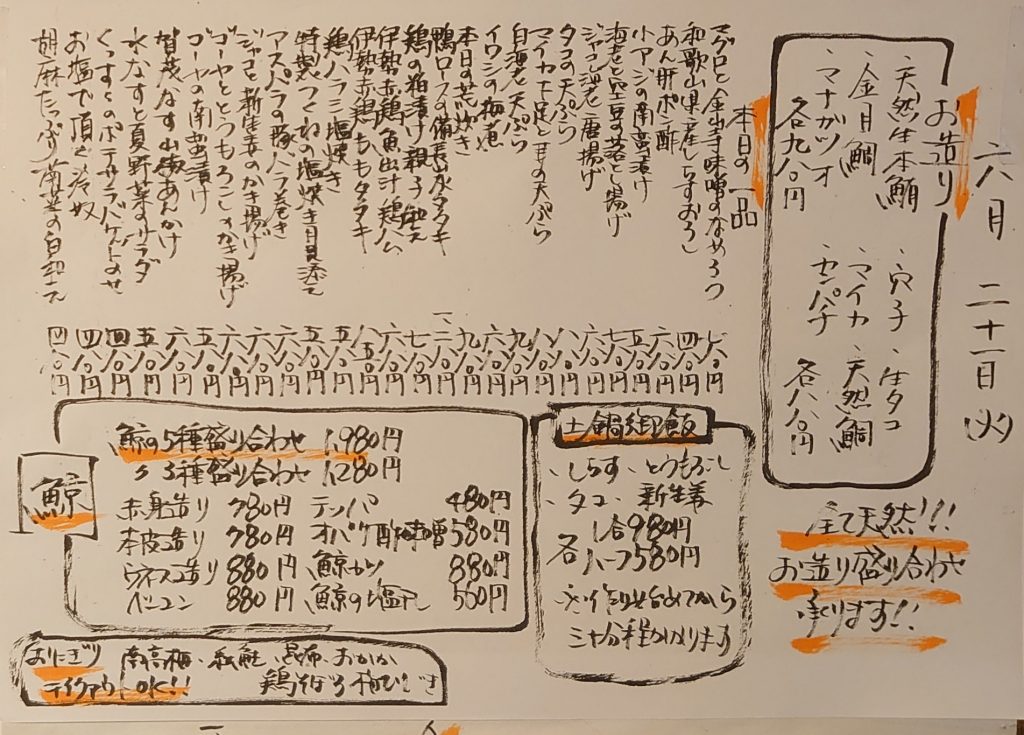 六月二十一日 火
お造り
、天然生本鮪
、金目鯛
、マナガツオ
各九八〇円
、穴子 、生タコ
、マイカ 、天然鯛
、カンパチ
各八八〇円
全て天然!!!
お造り盛り合わせ
承ります!!
本日の一品
マグロと金山寺味噌のなめろう 七八〇円
和歌山県産しらすおろし 四八〇円
あん肝ポン酢 六八〇円
小アジの南蛮漬け 五八〇円
海老と空豆の落とし揚げ 七八〇円
ジャコ海老唐揚げ 六八〇円
タコの天ぷら 八八〇円
マイカ下足と甘の天ぷら 八八〇円
白海老天ぷら 九八〇円
イワシの梅煮 六八〇円
本日の荒炊き 九八〇円
鴨ロースの備長炭タタキ 一二八〇円
鶏の粕漬け親子和え 七八〇円
伊勢赤鶏魚出汁鶏ハム 六八〇円
伊勢赤鶏ももタタキ 八五〇円
鶏ハラミ塩焼き 五八〇円
特製つくねの塩焼き月見添え 五八〇円
アスパラの豚バラ巻き 六八〇円
ジャコと新生姜のかき揚げ 六八〇円
ゴーヤととうもろこしかき揚げ 六八〇円
ゴーヤの南蛮漬け 五八〇円
賀茂なす山椒あんかけ 六八〇円
水なすと夏野菜のサラダ 五八〇円
くんすとのポテサラバケットのせ 四八〇円
お塩で頂く冷奴 四八〇円
胡麻たっぷり 白和え 四八〇円
土鍋御飯
、しらす 、とうもろこし
、タコ 、新生姜
各 1合980円
ハーフ580円
※作り始めてから
三十分程かかります
鯨
鯨の5種盛り合わせ 1,980円
〃 3種盛り合わせ 1,280円
赤身造り 780円 テッパ 480円
本皮造り 780円 オバケ酢味噌 580円
ウネス造り 880円 鯨カツ 880円
ベーコン 880円 鯨の塩 580円
おにぎり 南高梅、紅鮭、昆布、おかか
テイクアウトOK!! 鶏そぼろ 梅ひじき